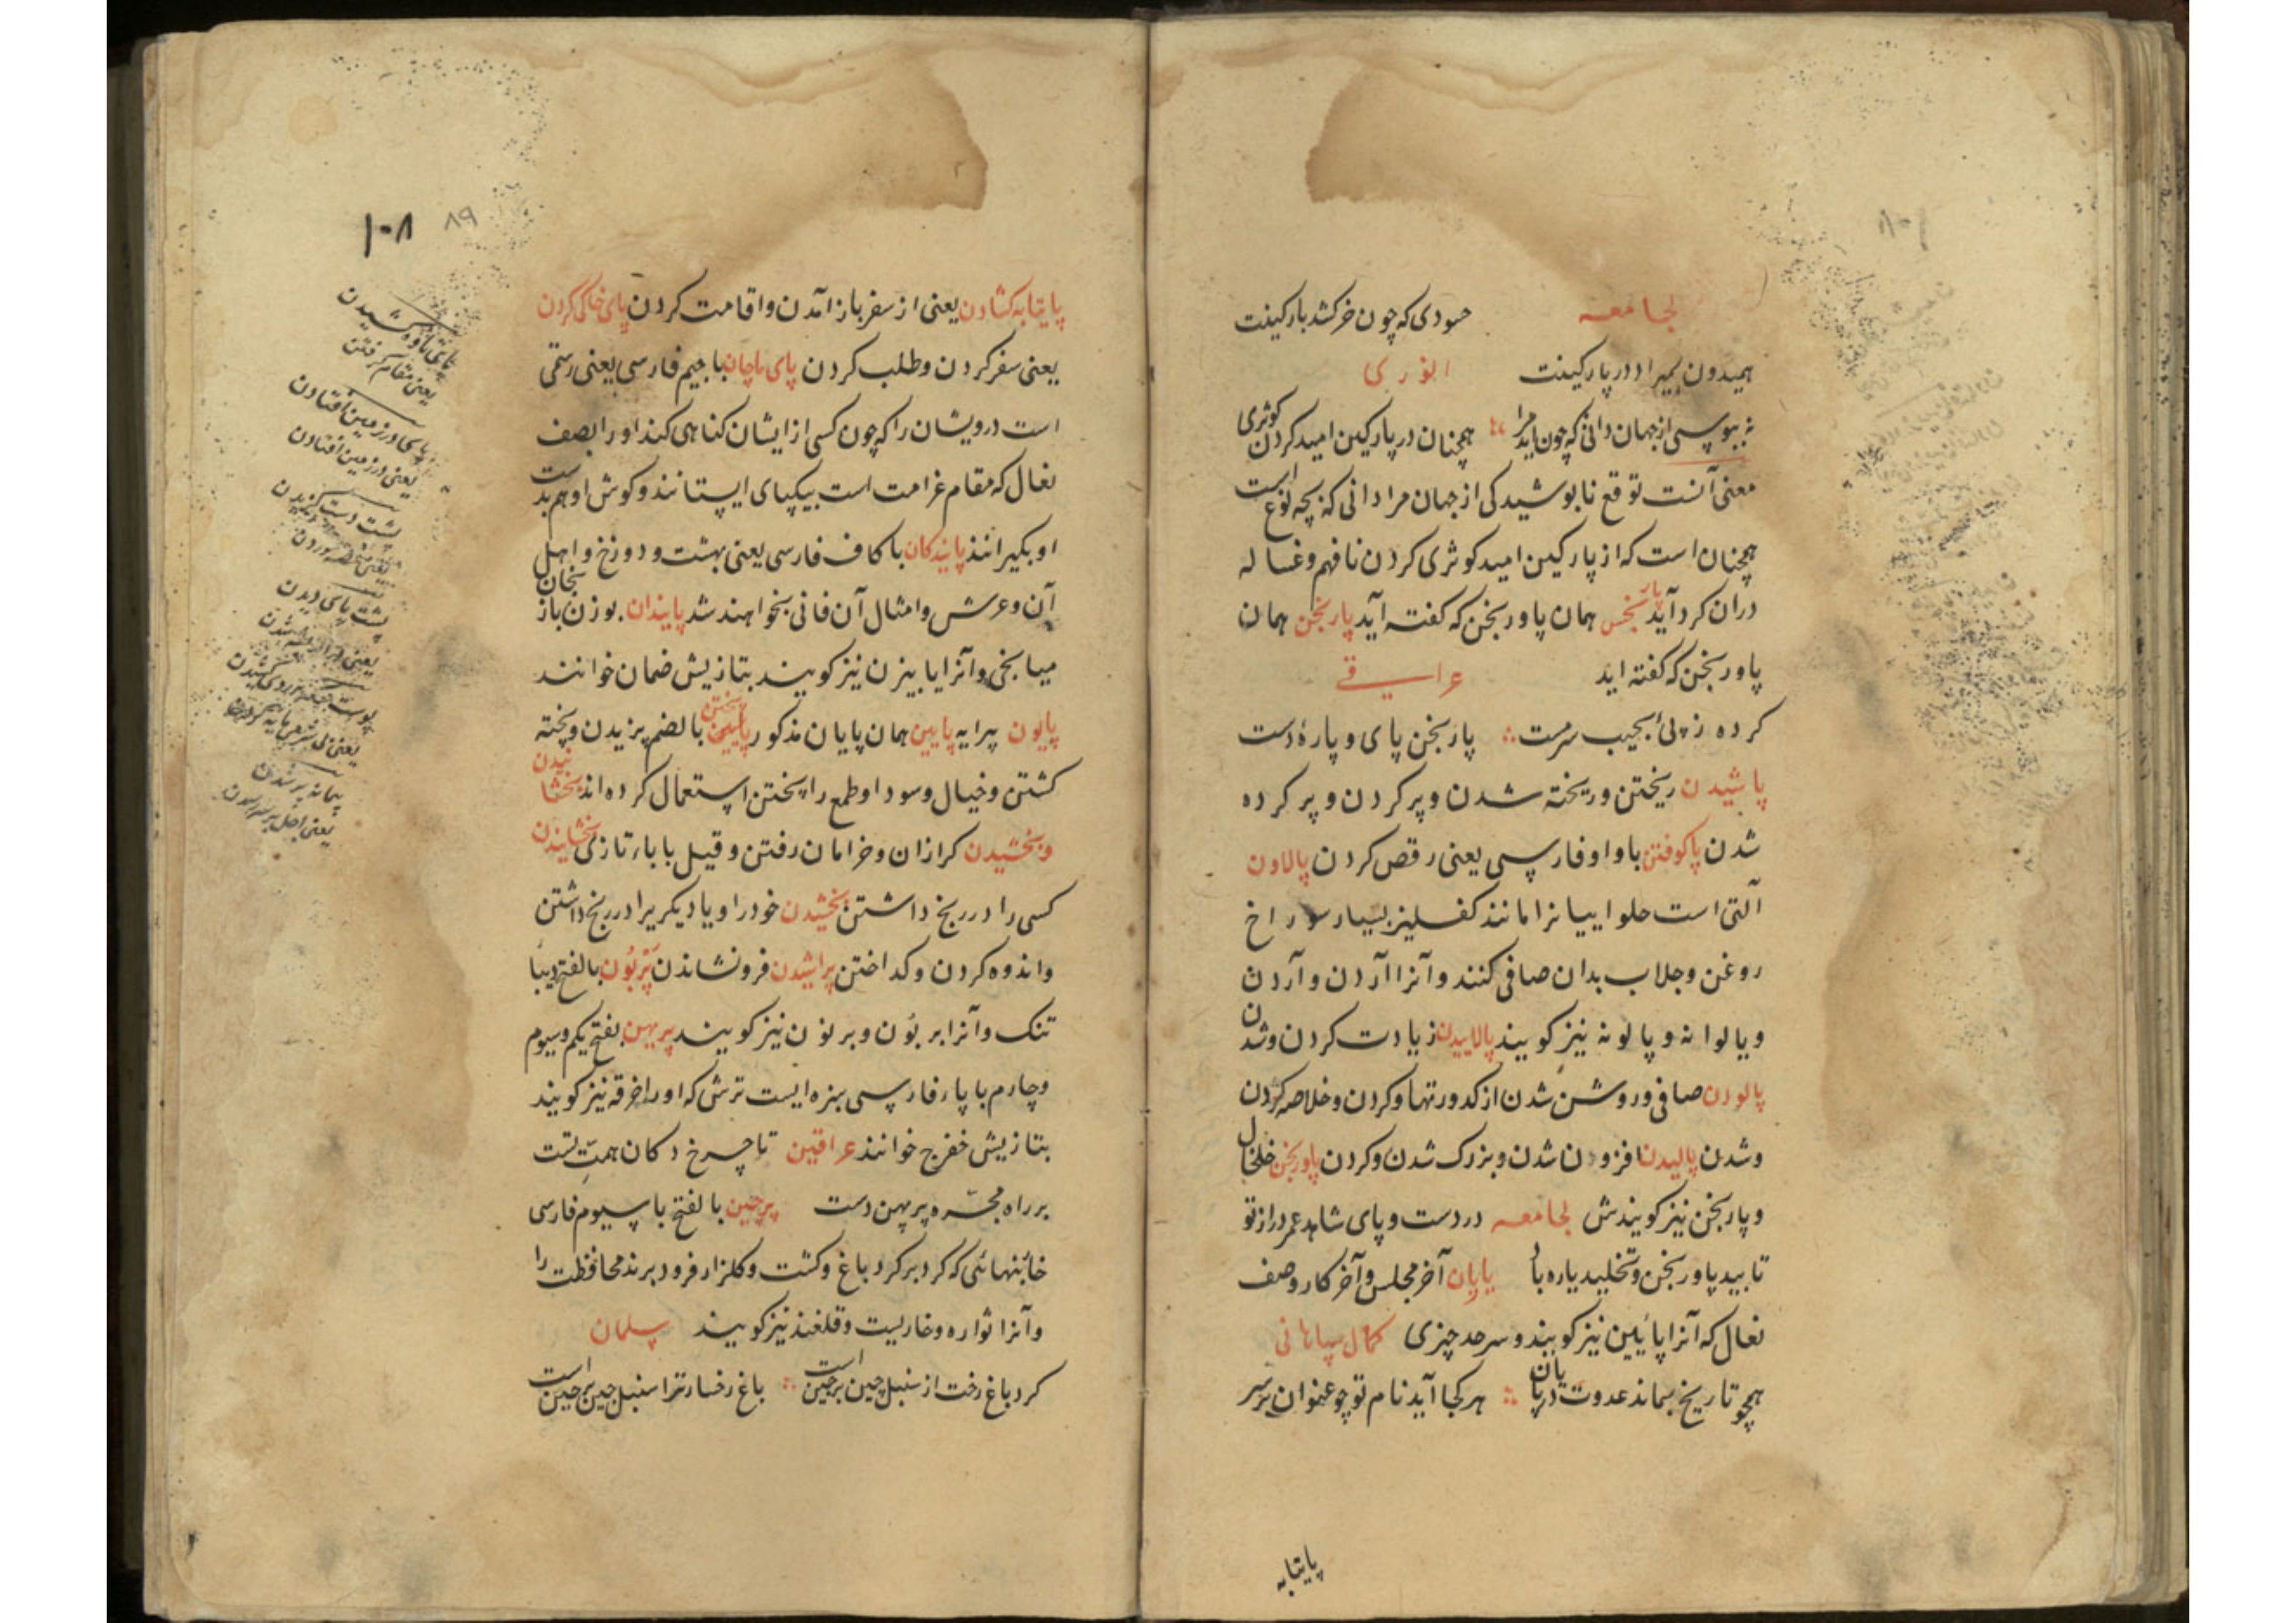 لجامعه حسودی که چون خر کشد بارکینت
همیدون بمیراد در پارکینت انوری
نه بیوسی از جهان دانی که چون آید مرا همچنان در پارکین امید کردن کوثری
معنی آنست توقع نابوشیدگی از جهان مرا دانی که بچه نوع است
همچنان است که از پارکین امید کوثری کردن نافهم وغساله
دران گرد آید همان پاورنجن که گفته آید پارنجن همان
پاورنجن که گفته اید عراقی
کرده ز پی سرمست پارنجن پای و پارهٔ دست
پاشیدن ریختن و ریخته شدن و پر کردن و پر کرده
شدن پاکوفتن با واو فارسی یعنی رقص کردن پالاون
آلتی است حلواییانرا مانند کفلیز بسیار سوراخ
روغن و جلاب بدان صافی کنند و آنرا آردن و آردن
و پالوانه و پالونه نیز گویند پالاییدن زیادت کردن و شدن
پالودن صافی و روشن شدن از کدورتها و کردن و خلاصه کردن
و شدن پالیدن افزودن شدن و بزرگ شدن و کردن پاورنجن خلخال
و پارنجن نیز گویندش لجامعه در دست و پای شاهد عمر دراز تو
تابید پاورنجن و تخلید یاره باد پایان آخر مجلس و آخر کار وصف
نعال که آنرا پائین نیز گویند و سرحد چیزی کمال سپاهانی
همچو تاریخ بماند عدوت در پایان هر کجا آید نام تو چو عنوان بر سر
پایتابه
۱۰۸ ۸۹
پایتابه کشادن یعنی از سفر باز آمدن و اقامت کردن پای خاکی کردن
یعنی سفر کردن و طلب کردن پای ماچان با جیم فارسی یعنی رسمی
است درویشان را که چون کسی از ایشان کناهی کند او را بصف
نعال که مقام غرامت است بیکپای ایستانند و کوش او هم بدست
او بگیرانند پایندکان با کاف فارسی یعنی بهشت و دوزخ و اهل
آن و عرش و امثال آن فانی نخواهند شد پایندان بوزن بازنجان
میانجی و آنرا پایبزن نیز گویند بتازیش ضمان خوانند
پایون پیرایه پایین همان پایان مذکور پختن بالضم پزیدن و پخته
کشتن و خیال و سودا و طمع را پختن استعمال کرده اند پخشانیدن
و پخشیدن کرازان و خرامان رفتن و قیل با باء تازی پخشاندن
کسی را در رنج داشتن پخشیدن خود را و یا دیگریرا در رنج داشتن
و اندوه کردن و کداختن پراشیدن فرونشاندن پرنون بالفتح دیبا
تنک و آنرا بربون و برنون نیز گویند پرپهن بفتح یکم و سیوم
و چارم با پاء فارسی سبزه ایست ترش که او را خرفه نیز گویند
بتازیش خفرج خوانند عراقین تا چرخ دکان همت تست
بر راه مجره پرپهن دست پرچین بالفتح با سیوم فارسی
خابنهائی که کرد بر کرد باغ و کشت و کلزار فرو برند محافظت را
و آنرا نواره و خاربست و قلغند نیز گویند سلمان
کرد باغ رخت از سنبل چین پرچین است باغ رخسار ترا سنبل چین پرچین است
یعنی مقام گرفتن
پای در زمین افتادن
یعنی در زمین افتادن
پشت دست کزیدن
پشت پای دیدن
پیمانه پر شدن
یعنی اجل بسر رسیدن